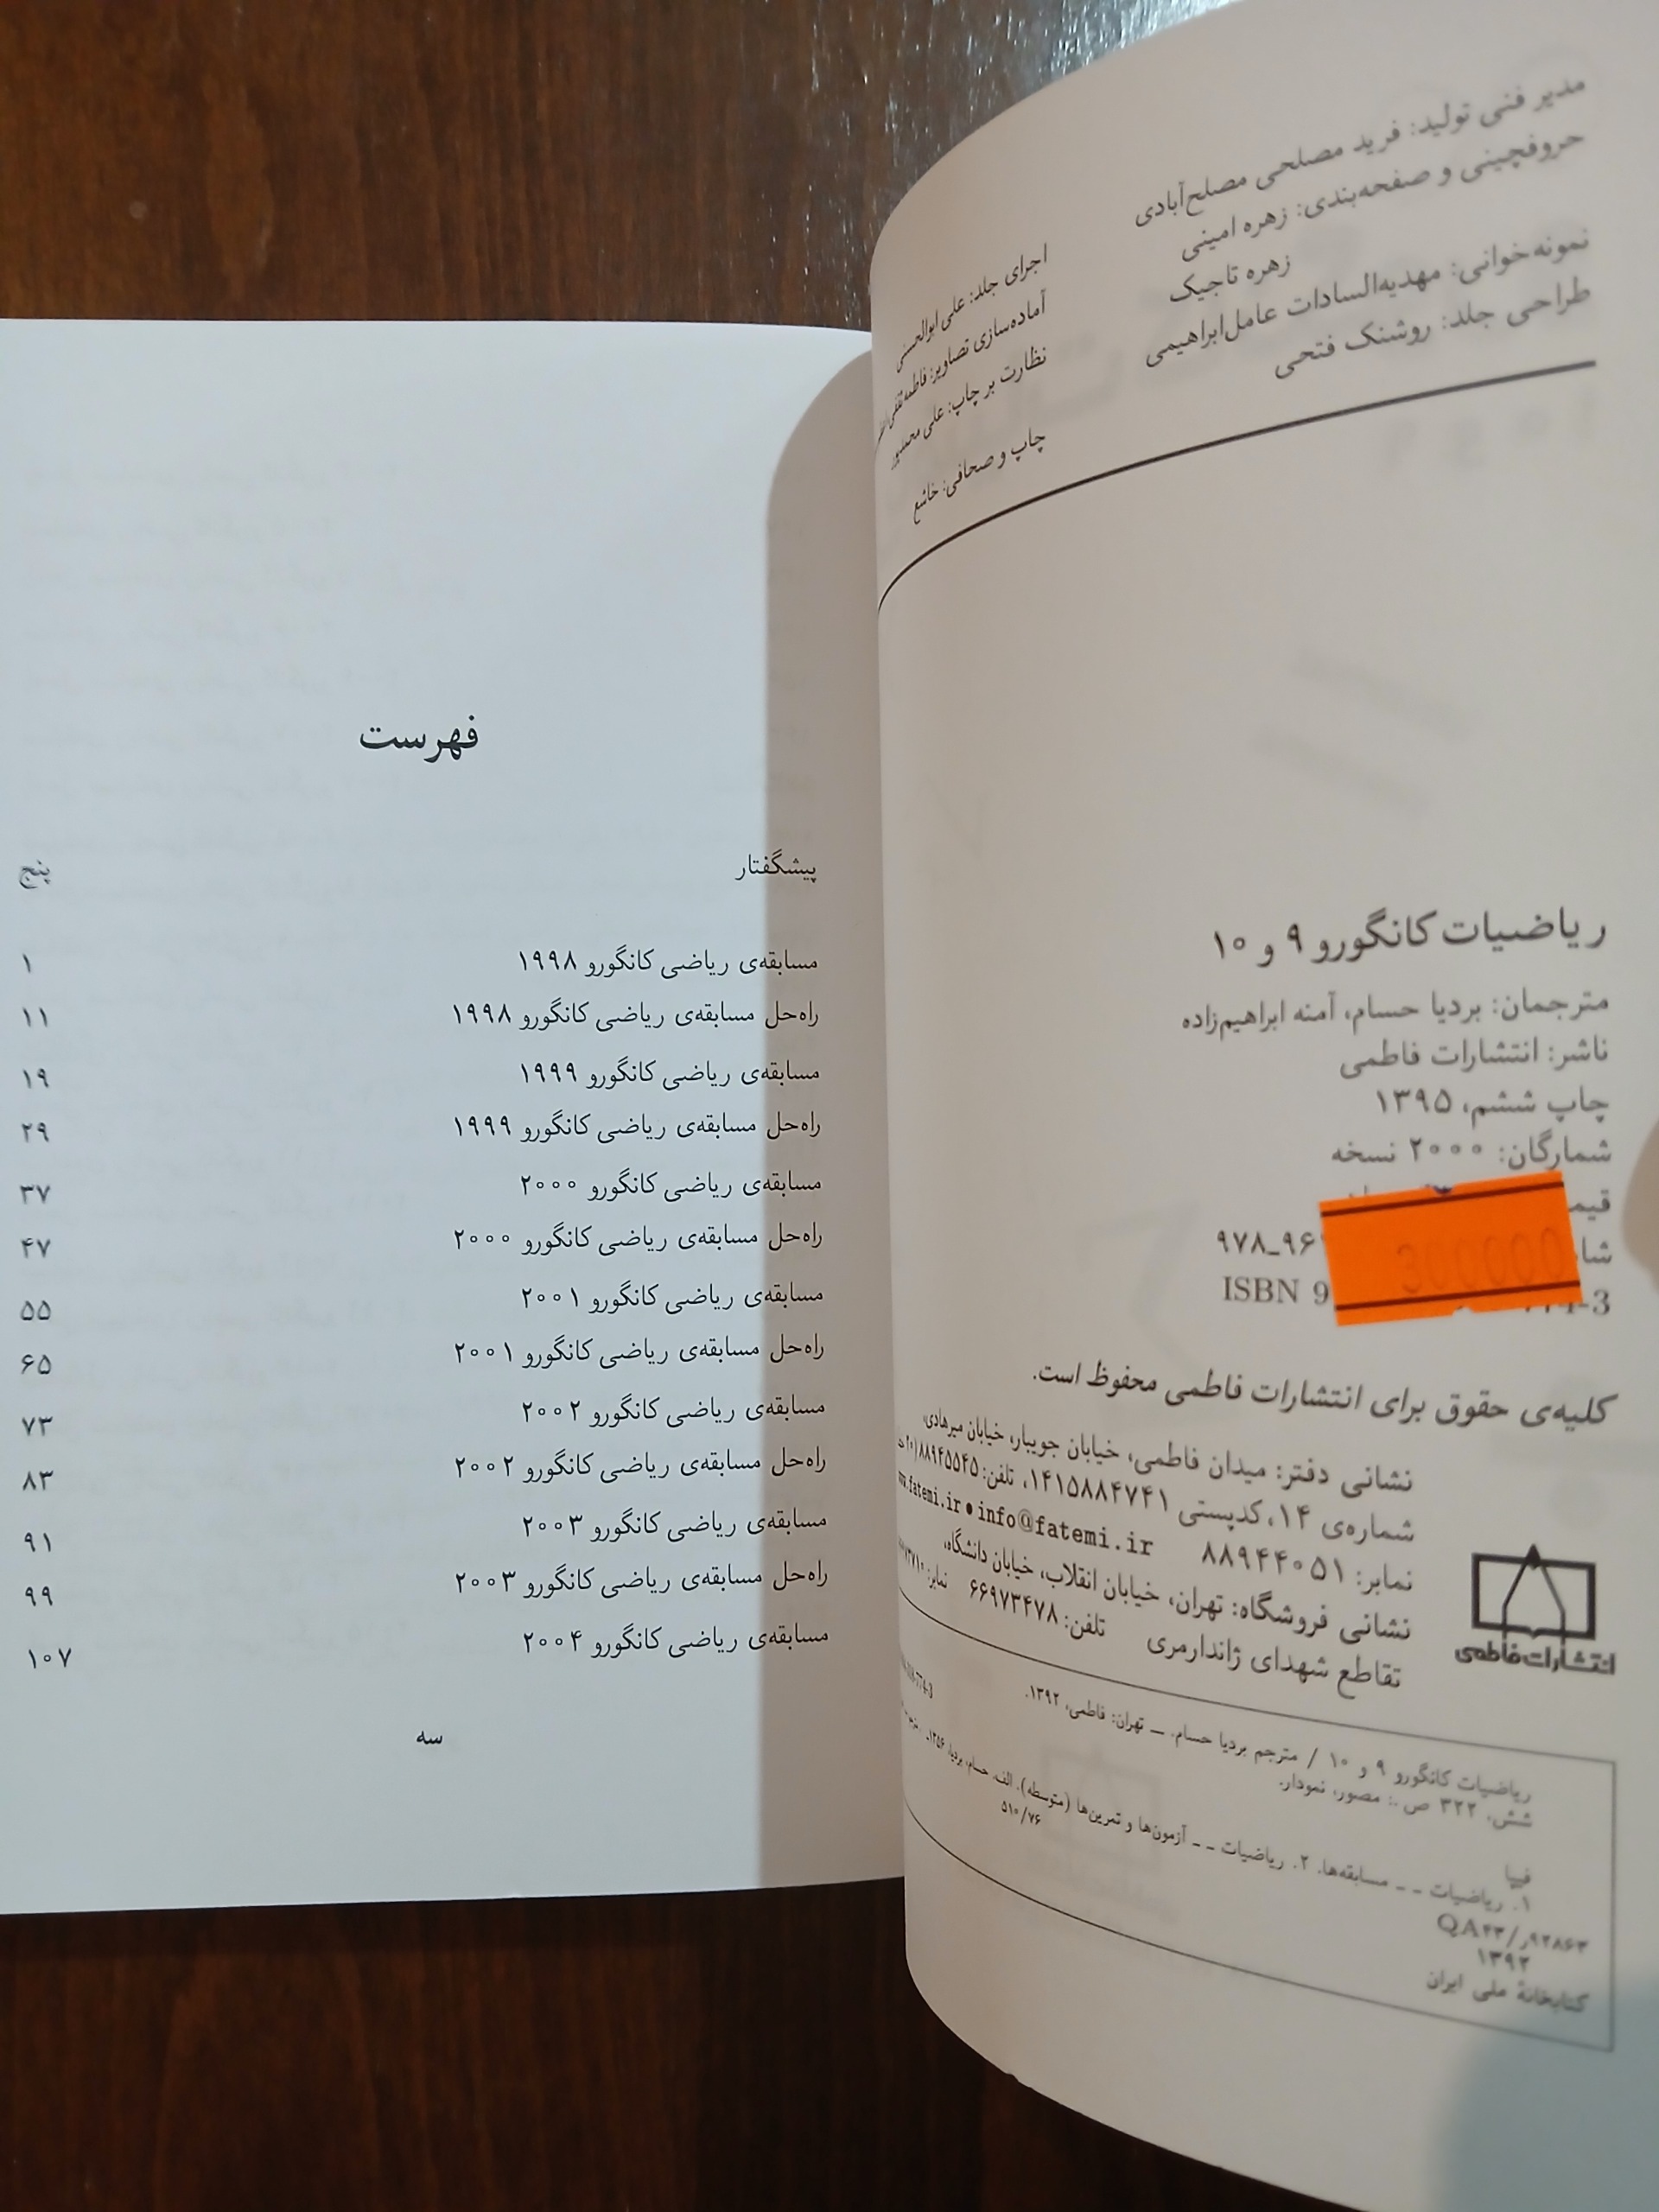 مدیر فنی تولید: فرید مصلحی مصلح‌آبادی
حروفچینی و صفحه‌بندی: زهره امینی
زهره تاجیک
نمونه‌خوانی: مهدیه‌السادات عامل‌ابراهیمی
طراحی جلد: روشنک فتحی
اجرای جلد: علی ابوالحسنی
آماده‌سازی تصاویر: فاطمه
نظارت بر چاپ: علی
چاپ و صحافی: خاشع
ریاضیات کانگورو ۹ و ۱۰
مترجمان: بردیا حسام، آمنه ابراهیم‌زاده
ناشر: انتشارات فاطمی
چاپ ششم، ۱۳۹۵
شمارگان: ۲۰۰۰ نسخه
300000
ISBN 9
کلیه‌ی حقوق برای انتشارات فاطمی محفوظ است.
نشانی دفتر: میدان فاطمی، خیابان جویبار، خیابان میرهادی،
شماره‌ی ۱۴، کدپستی ۱۴۱۵۸۸۴۷۴۱، تلفن: ۸۸۹۴۵۵۴۵
نمابر: ۸۸۹۴۴۰۵۱ info@fatemi.ir • .fatemi.ir
نشانی فروشگاه: تهران، خیابان انقلاب، خیابان دانشگاه،
تقاطع شهدای ژاندارمری تلفن: ۶۶۹۷۳۴۷۸ نمابر:
انتشارات فاطمی
ریاضیات کانگورو ۹ و ۱۰ / مترجم بردیا حسام. ــ تهران: فاطمی، ۱۳۹۲.
شش، ۳۲۲ ص.: مصور، نمودار.
فیپا
۱. ریاضیات ــ مسابقه‌ها. ۲. ریاضیات ــ آزمون‌ها و تمرین‌ها (متوسطه). الف. حسام، بردیا، ۱۳۵۶ـ
۵۱۰/۷۶
۱۳۹۲
کتابخانهٔ ملی ایران
فهرست
پیشگفتار پنج
مسابقه‌ی ریاضی کانگورو ۱۹۹۸ ۱
راه‌حل مسابقه‌ی ریاضی کانگورو ۱۹۹۸ ۱۱
مسابقه‌ی ریاضی کانگورو ۱۹۹۹ ۱۹
راه‌حل مسابقه‌ی ریاضی کانگورو ۱۹۹۹ ۲۹
مسابقه‌ی ریاضی کانگورو ۲۰۰۰ ۳۷
راه‌حل مسابقه‌ی ریاضی کانگورو ۲۰۰۰ ۴۷
مسابقه‌ی ریاضی کانگورو ۲۰۰۱ ۵۵
راه‌حل مسابقه‌ی ریاضی کانگورو ۲۰۰۱ ۶۵
مسابقه‌ی ریاضی کانگورو ۲۰۰۲ ۷۳
راه‌حل مسابقه‌ی ریاضی کانگورو ۲۰۰۲ ۸۳
مسابقه‌ی ریاضی کانگورو ۲۰۰۳ ۹۱
راه‌حل مسابقه‌ی ریاضی کانگورو ۲۰۰۳ ۹۹
مسابقه‌ی ریاضی کانگورو ۲۰۰۴ ۱۰۷
سه